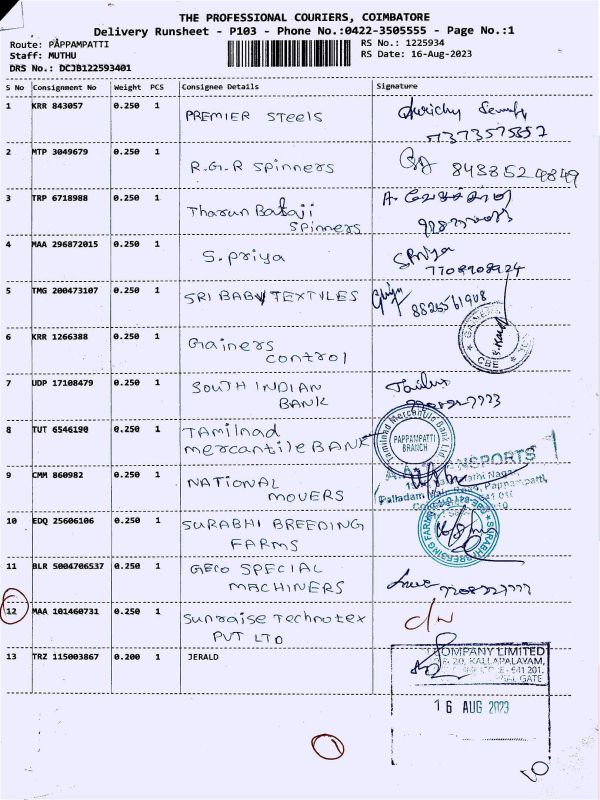 THE PROFESSIONAL COURIERS, COIMBATORE
Delivery Runsheet - P103 - Phone No.:0422-3505555 - Page No.:1
Route: PAPPAMPATTI RS No.: 1225934
Staff: MUTHU RS Date: 16-Aug-2023
DRS No.: DCJB122593401
S No Consignment No Weight PCS Consignee Details Signature
1 KRR 843057 0.250 1 PREMIER Steels
7373575552
2 MTP 3049679 0.250 1 R.G.R Spinners 8438524849
3 TRP 6718988 0.250 1 Tharun Balaji
Spinners
4 MAA 296872015 0.250 1 S.Priya SPriya
7708908924
5 TMG 200473107 0.250 1 SRI BABY TEXTILES 8825561908
6 KRR 1266388 0.250 1 Gainers
control
GAINERS
CBE
7 UDP 17108479 0.250 1 SOUTH INDIAN
BANK
8 TUT 6546190 0.250 1 TAMilnad
mercantile BANK
Tamilnad Mercantile Bank Ltd.
PAPPAMPATTI
BRANCH
9 CMM 860982 0.250 1 NATIONAL
MOVERS
Palladam Main Road, Pappampatti,
10 EDQ 25606106 0.250 1 SURABHI BREEDING
FARMS
SURABHI BREEDING FARMS
11 BLR 5004706537 0.250 1 GECO SPECIAL
MACHINERS
12 MAA 101460731 0.250 1 Sunraise Technotex
PVT LTD
13 TRZ 115003867 0.200 1 JERALD
OMPANY LIMITED
KALLAPALAYAM,
641 201.
GATE
16 AUG 2023
1